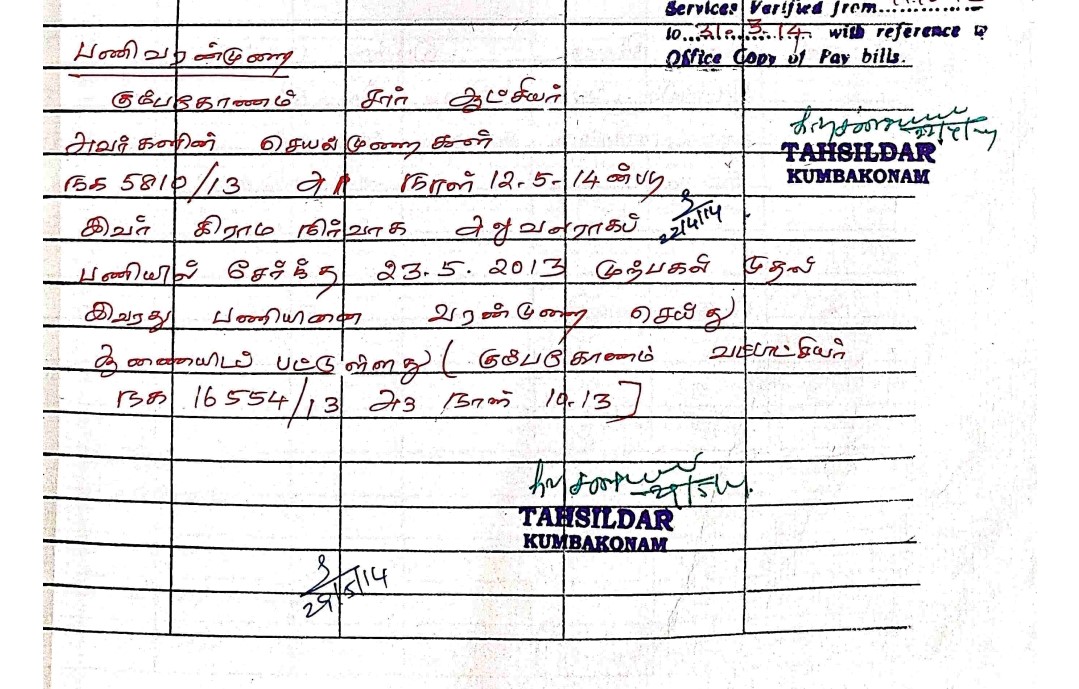 Services Varified from..............
to...31.3.14. with reference
Office Copy of Pay bills.
பணிவரன்முறை
கும்பகோணம் சார் ஆட்சியர்
அவர்களின் செயல்முறைகள்
நக 5810/13 நாள் 12.5.14 ன்படி
இவர் கிராம நிர்வாக அலுவலராகப்
பணியில் சேர்ந்த 23.5.2013 முற்பகல் முதல்
இவரது பணியினை வரன்முறை செய்து
ஆணையிடப் பட்டுள்ளது ( கும்பகோணம் வட்டாட்சியர்
நக 16554/13 அ3 நாள் 10.13 ]
22/4/14
TAHSILDAR
KUMBAKONAM
22/4/14
29/5/14
TAHSILDAR
KUMBAKONAM
29/5/14